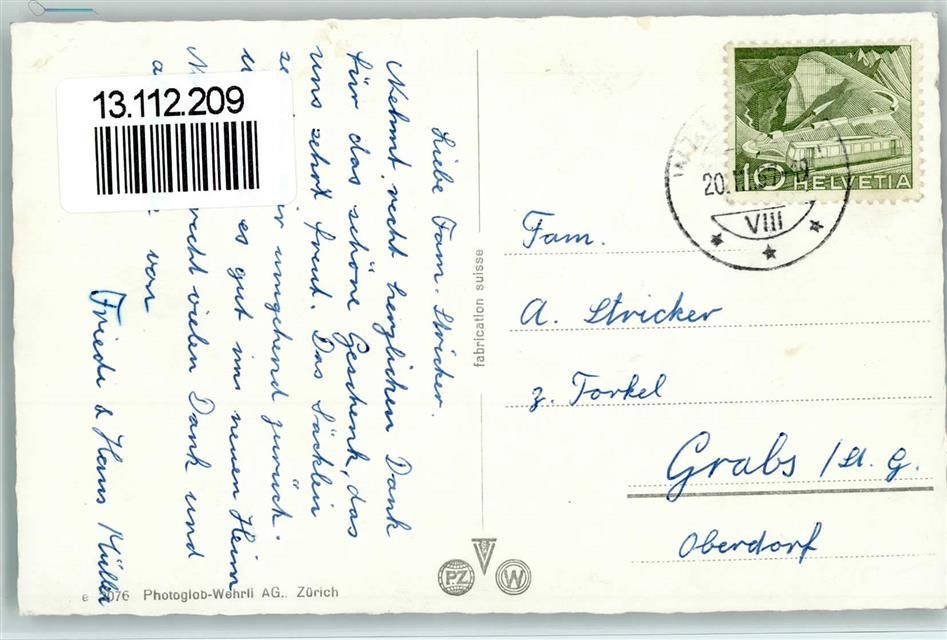 13.112.209
Liebe Fam. Stricker.
Nehmt recht herzlichen Dank
für das schöne Geschenk, das
uns sehr freut. Das Säcklein
umgehend zurück.
es gut im neuen Heim
recht vielen Dank und
von
Friedi & Hans Müller
fabrication suisse
10 HELVETIA
VIII
Fam.
A. Stricker
z. Torkel
Grabs / St. G.
Oberdorf
PZ W
e 076 Photoglob-Wehrli AG., Zürich